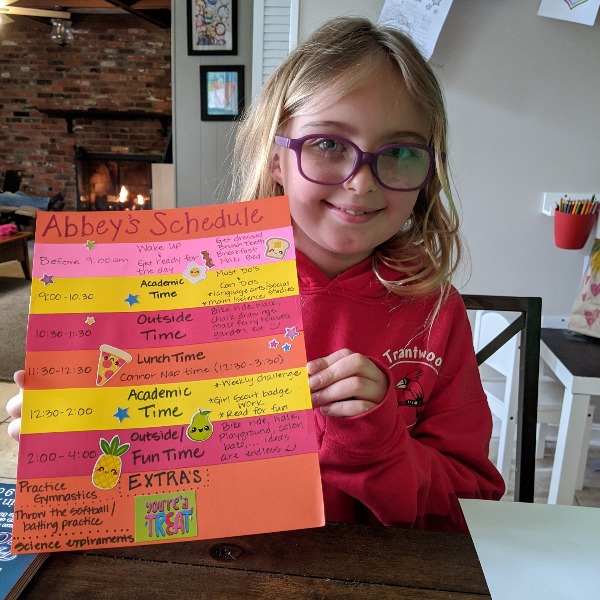 Abbey's Schedule
Before 9:00am
Wake Up
+
Get ready for
the day
Get dressed
Brush Teeth
Breakfast
Make Bed
9:00-10:30
Academic
Time
Must Do's
+
Can Do's
*Language arts/social
studies
*math/science
10:30-11:30
Outside
Time
Bike ride, walk,
chalk drawings,
make ferry houses
garden, eat
11:30-12:30
Lunch Time
Connor Nap time (12:30-3:30)
12:30-2:00
Academic
Time
*Weekly challenge
*Girl Scout badge
work
*Read for fun
2:00-4:00
Outside/
Fun Time
Bike ride, walk,
playground, color,
bake,... ideas
are endless
EXTRA'S
Practice
Gymnastics
Throw the softball/
batting practice
Science expiraments
you're a
TREAT
Trantwoo